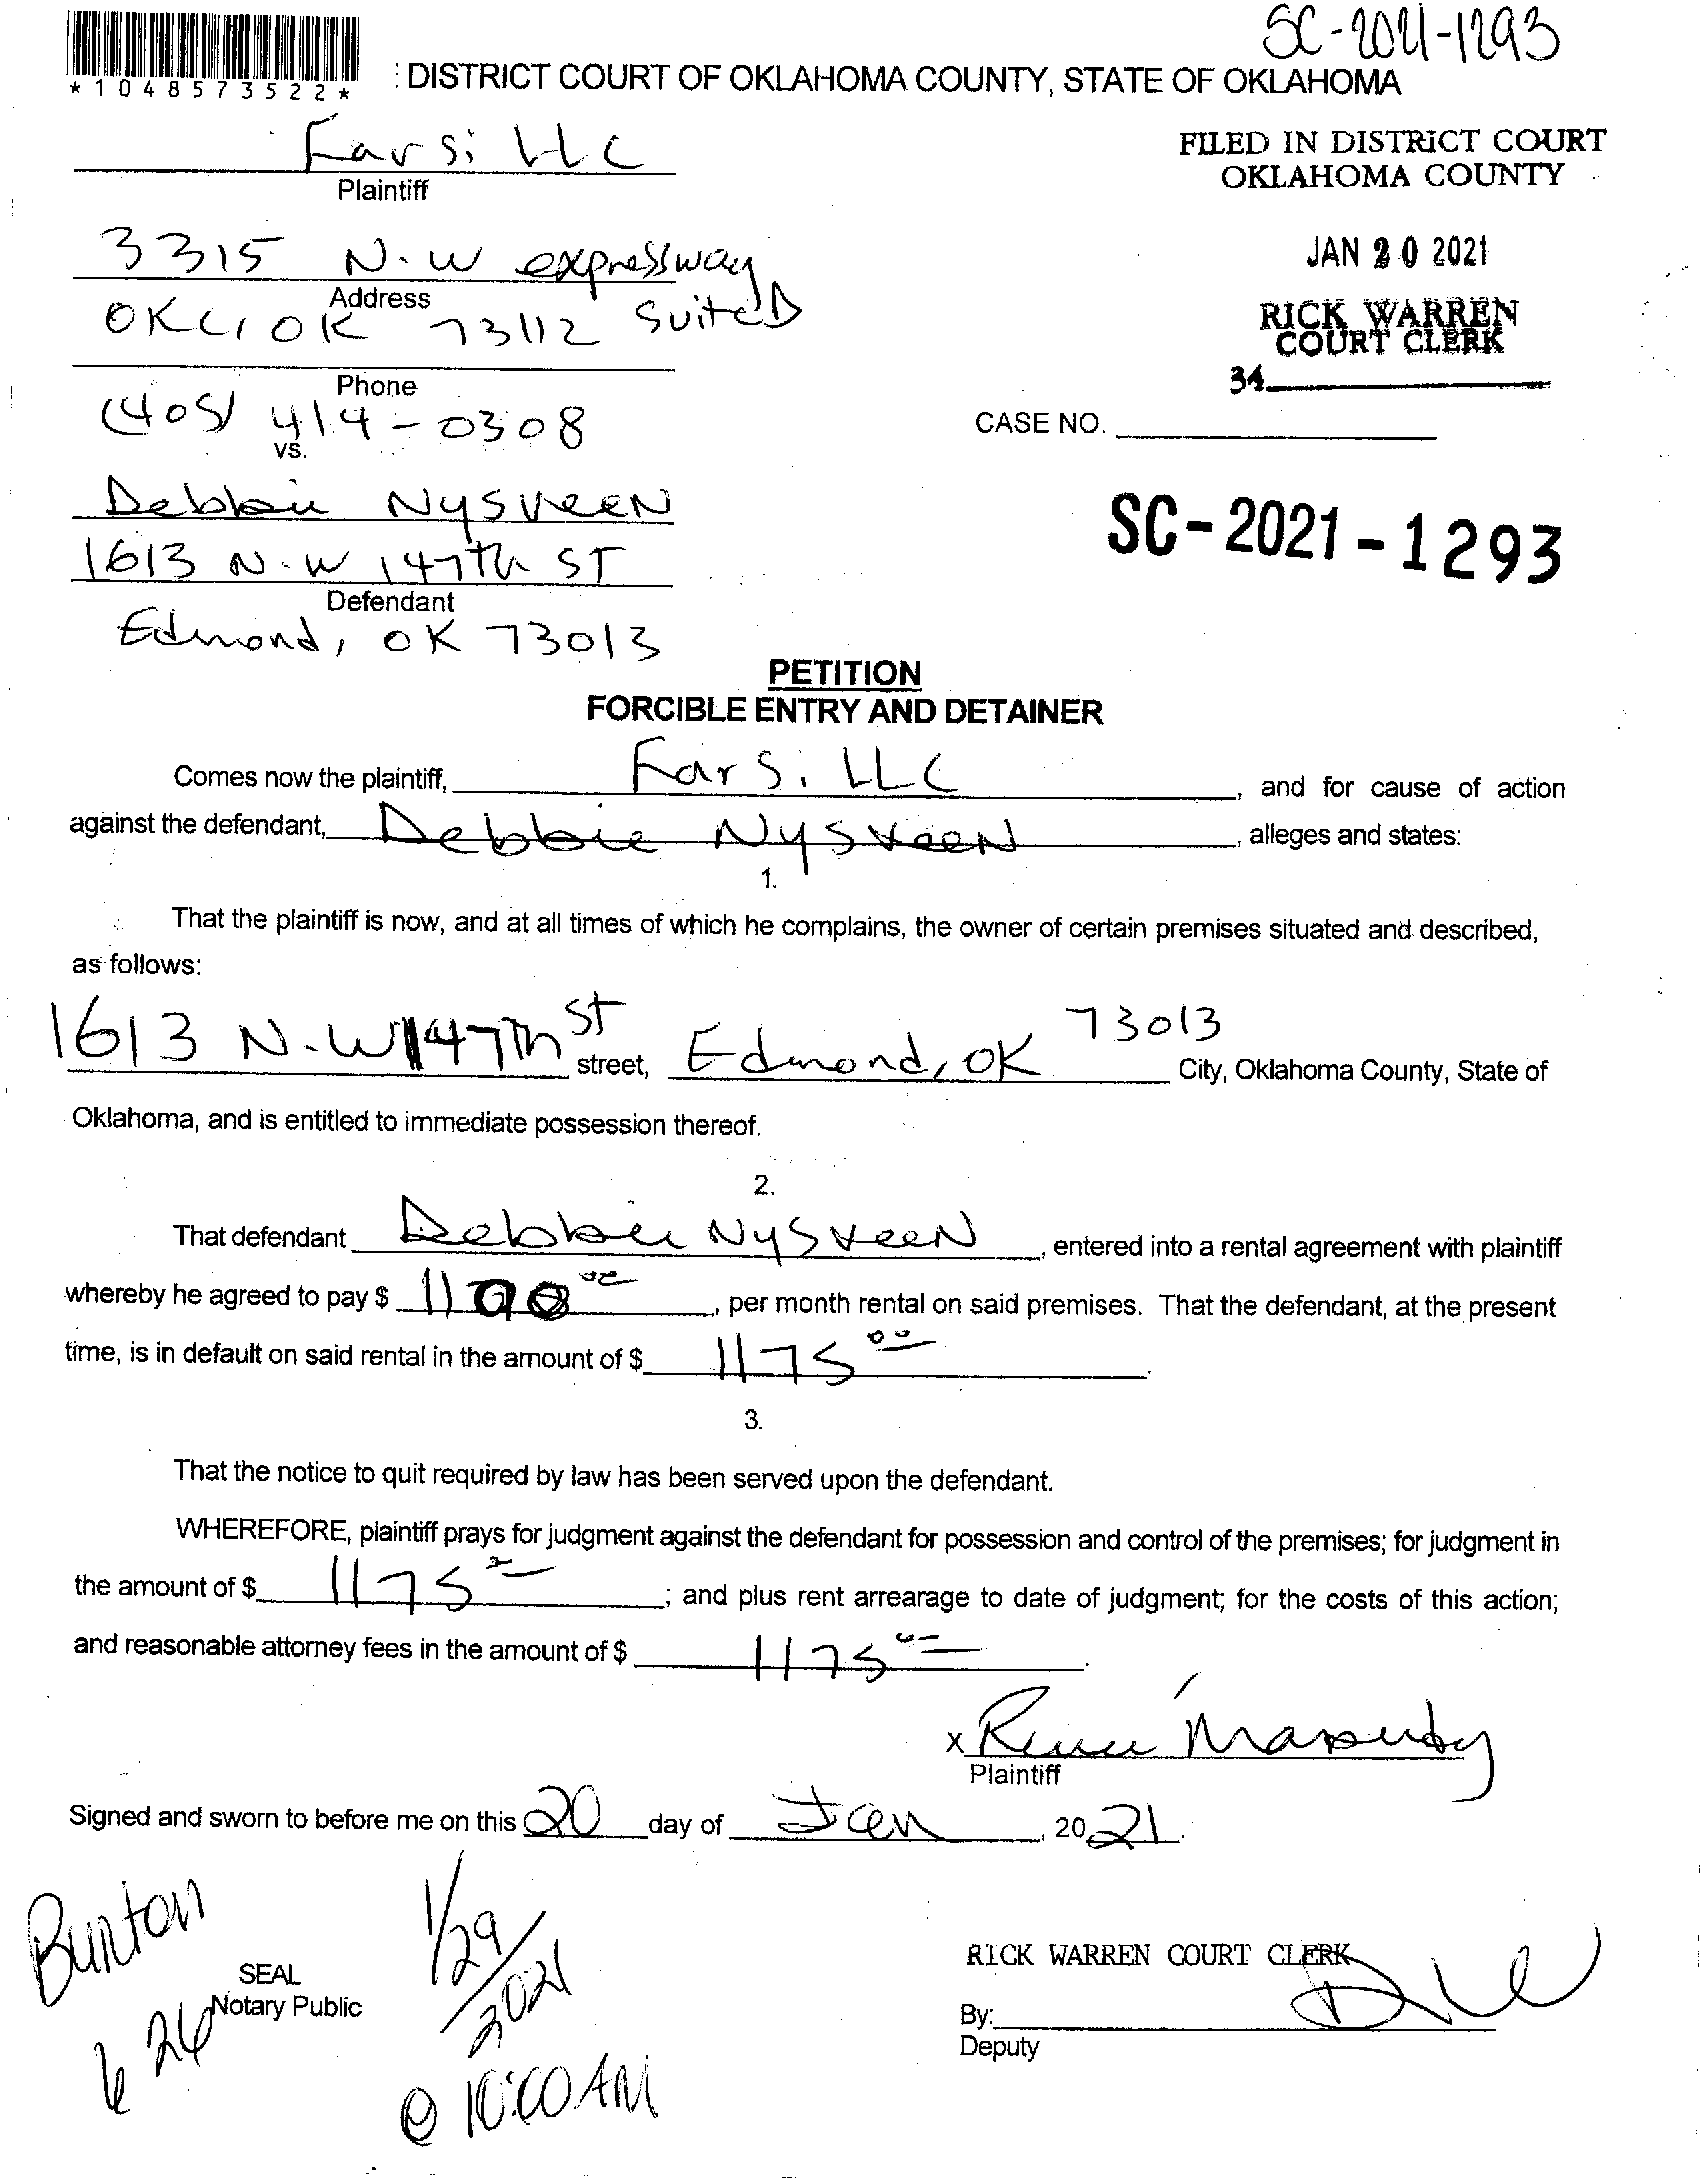 SC-2021-1293
*1048573522*
: DISTRICT COURT OF OKLAHOMA COUNTY, STATE OF OKLAHOMA
Farsi LLC
Plaintiff
FILED IN DISTRICT COURT
OKLAHOMA COUNTY
3315 N.W expressway
Address
OKC, OK 73112 Suite D
JAN 20 2021
RICK WARREN
COURT CLERK
34
Phone
(405) 414-0308
CASE NO.
vs.
Debbie Nysveen
1613 N.W 147th ST
Defendant
Edmond, OK 73013
SC-2021-1293
PETITION
FORCIBLE ENTRY AND DETAINER
Comes now the plaintiff, Farsi LLC, and for cause of action
against the defendant, Debbie Nysveen, alleges and states:
1.
That the plaintiff is now, and at all times of which he complains, the owner of certain premises situated and described,
as follows:
1613 N.W 147Th St street, Edmond, OK 73013 City, Oklahoma County, State of
Oklahoma, and is entitled to immediate possession thereof.
2.
That defendant Debbie Nysveen, entered into a rental agreement with plaintiff
whereby he agreed to pay $ 1100 00, per month rental on said premises. That the defendant, at the present
time, is in default on said rental in the amount of $ 1175 00.
3.
That the notice to quit required by law has been served upon the defendant.
WHEREFORE, plaintiff prays for judgment against the defendant for possession and control of the premises; for judgment in
the amount of $ 1175; and plus rent arrearage to date of judgment; for the costs of this action;
and reasonable attorney fees in the amount of $ 1175.
x
Plaintiff
Signed and sworn to before me on this 20 day of Jan, 2021.
Burton
626
SEAL
Notary Public
1/29/2021
@ 10:00 AM
RICK WARREN COURT CLERK
By:
Deputy